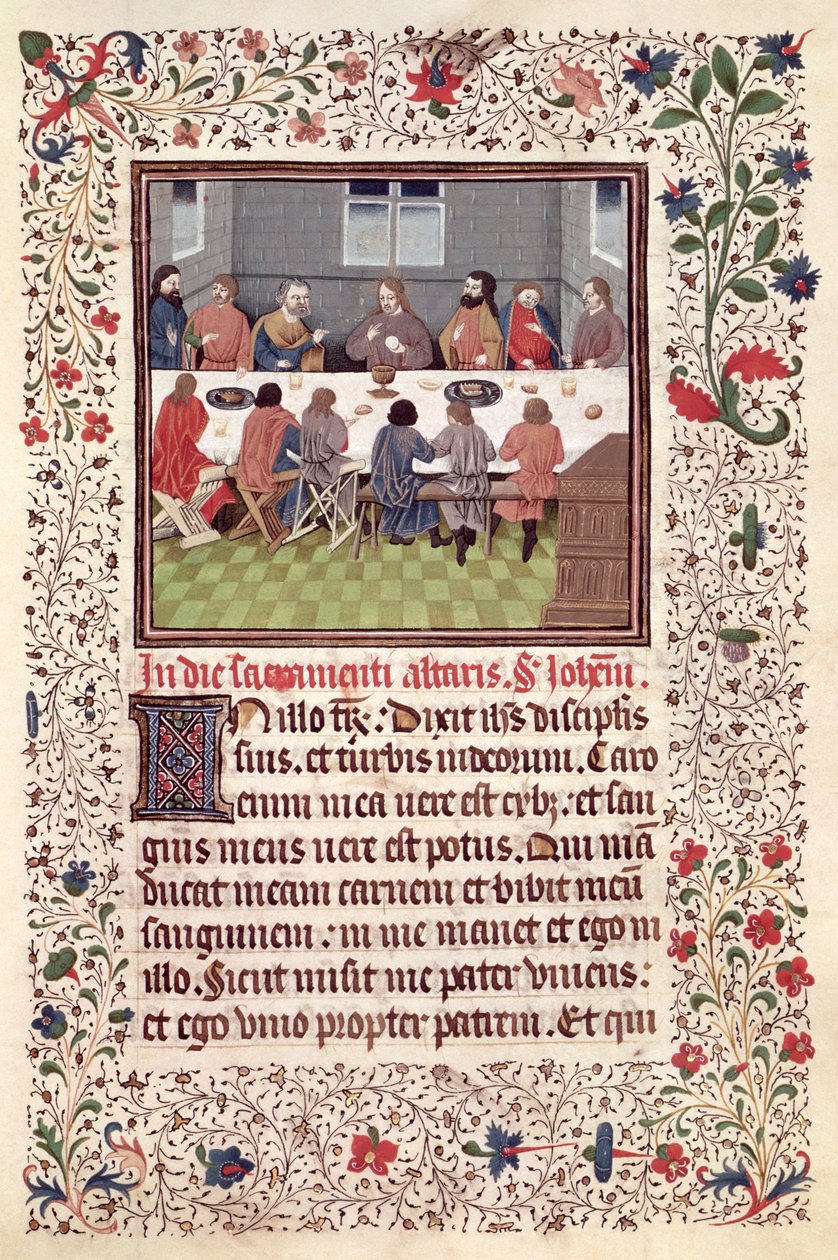 In die sacramenti altaris. S. Johēm.
In illo tr̄. : Dixit ihs̄ discipłis
suis. et turbis iudeorum. Caro
enim mea uere est cybꝫ : et san
guis meus uere est potus. Qui mā
ducat meam carnem et bibit meū
sanguinem : in me manet et ego in
illo. Sicut misit me pater viuens :
et ego viuo propter patrem. Et qui